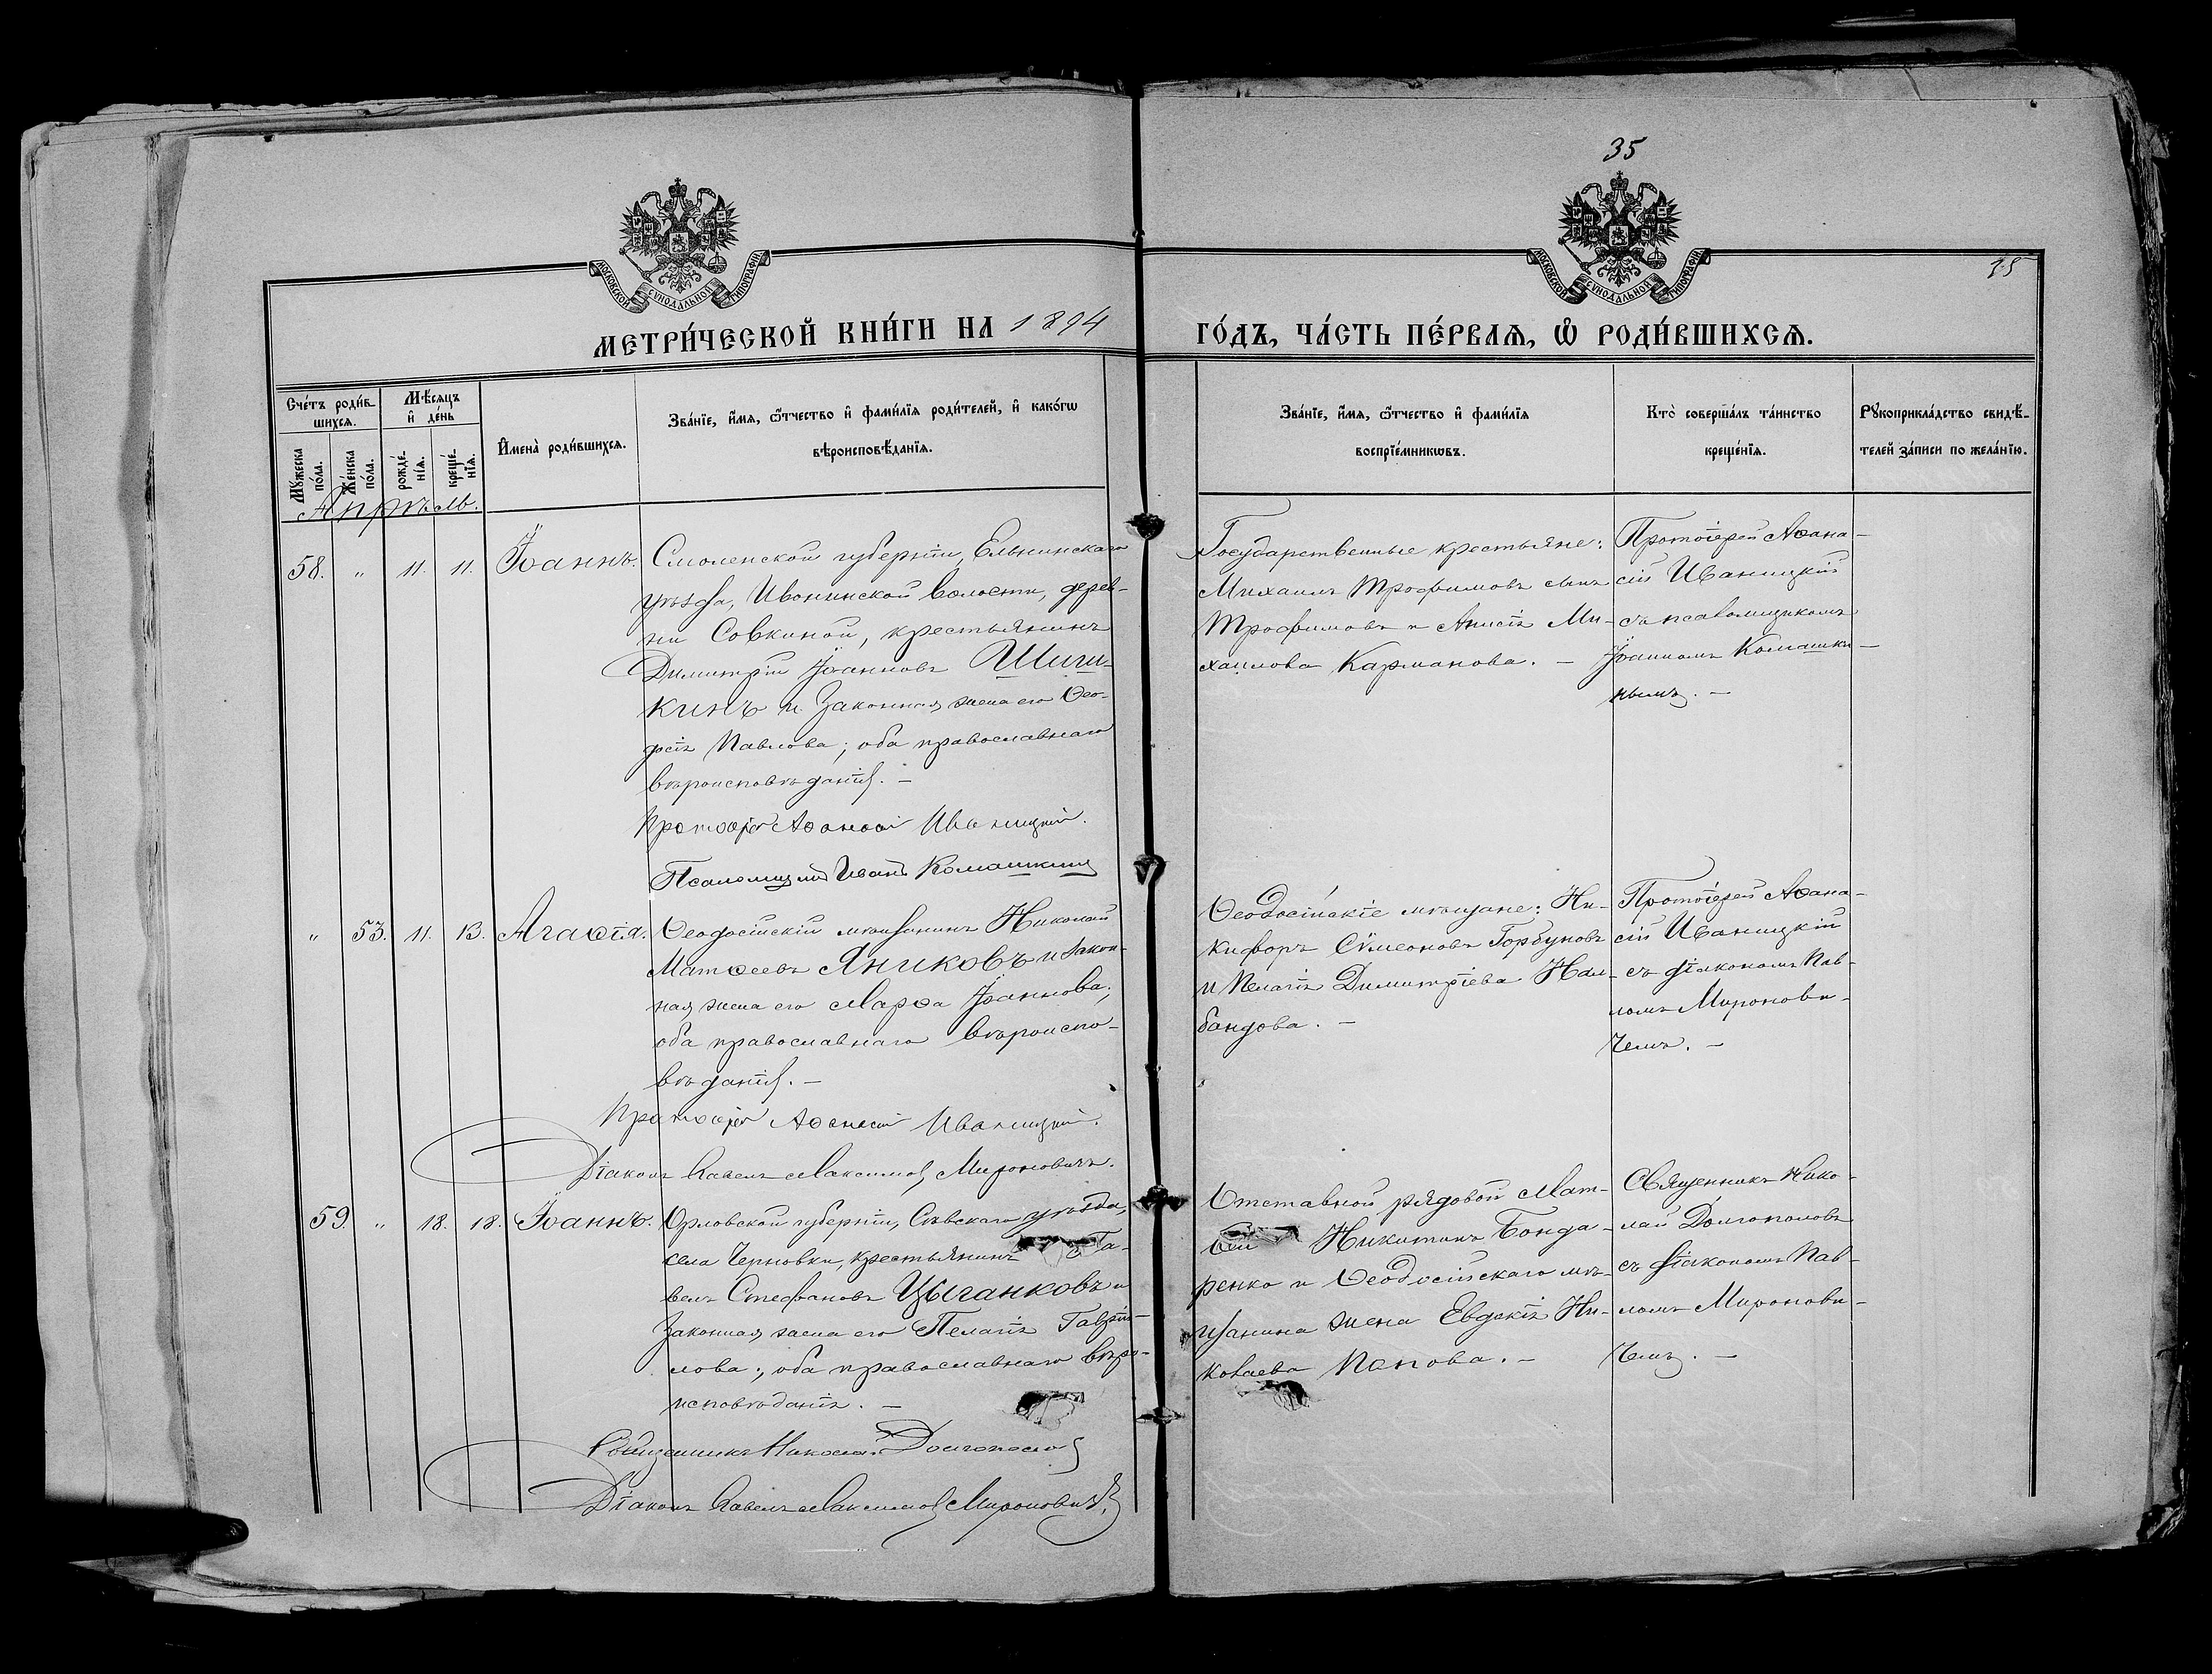 35
35
МОСКОВСКОЙ СУНОДАЛЬНОЙ ТИПОГРАФІИ
МОСКОВСКОЙ СУНОДАЛЬНОЙ ТИПОГРАФІИ
МЕТРИ́ЧЕСКОЙ КНИ́ГИ НА 1894
ГО́ДЪ, ЧА́СТЬ ПЕ́РВАЯ, Ѡ РОДИ́ВШИХСЯ.
Сче́тъ роди́в-
шихся.
Мѣ́сяцъ
и҆ де́нь
Мꙋ́жеска
по́ла.
Же́нска
по́ла.
рожде́-
нїѧ.
креще́-
нїѧ.
И҆мена̀ роди́вшихся.
Зва́нїе, и҆́мѧ, ѻ҆́тчество и҆ фами́лїѧ роди́телей, и҆ како́гѡ
вѣроисповѣ́данїѧ.
Зва́нїе, и҆́мѧ, ѻ҆́тчество и҆ фами́лїѧ
воспрїе́мникѡвъ.
Кто̀ соверша́лъ та́инство
креще́нїѧ.
Рꙋкоприкла́дство свидѣ́-
телей за́писи по жела́нїю.
Апрѣль.
58. " 11. 11. Іоаннъ.
Смоленской губерніи, Ельнинскаго
уѣзда, Ивонинской волости, дерев-
ни Совкиной, крестьянинъ
Димитрій Іоанновъ Шиш-
кинъ и законная жена его Ѳео-
досія Павлова; оба православнаго
вѣроисповѣданія. –
Протоіерей Аѳанасій Иваницкій.
Псаломщикъ Иванъ Комашкинъ
Государственные крестьяне:
Михаилъ Трофимовъ сынъ
Трофимовъ и Анисія Ми-
хаилова Карманова. –
Протоіерей Аѳана-
сій Иваницкій
съ псаломщикомъ
Іоанномъ Комашки-
нымъ. –
" 53. 11. 13. Агаѳія.
Ѳеодосійскій мѣщанинъ Николай
Матѳеевъ Яниковъ и закон-
ная жена его Марѳа Іоаннова;
оба православнаго вѣроиспо-
вѣданія. –
Протоіерей Аѳанасій Иваницкій.
Діаконъ Павелъ Максимовъ Мироновичъ.
Ѳеодосійскіе мѣщане: Ни-
кифоръ Сѵмеоновъ Горбуновъ
и Пелагія Димитріева Нал-
бандова. –
Протоіерей Аѳана-
сій Иваницкій
съ діакономъ Пав-
ломъ Миронови-
чемъ. –
59. " 18. 18. Іоаннъ.
Орловской губерніи, Сѣвскаго уѣзда,
села Черновки, крестьянинъ Па-
велъ Стефановъ Цыганковъ и
законная жена его Пелагія Гаврі-
лова; оба православнаго вѣро-
исповѣданія. –
Священникъ Николай Долгополовъ
Діаконъ Павелъ Максимовъ Мироновичъ.
Отставной рядовой Мат-
ѳей Никитинъ Бонда-
ренко и Ѳеодосійскаго мѣ-
щанина жена Евдокія Ни-
колаева Попова. –
Священникъ Нико-
лай Долгополовъ
съ діакономъ Пав-
ломъ Миронови-
чемъ. –